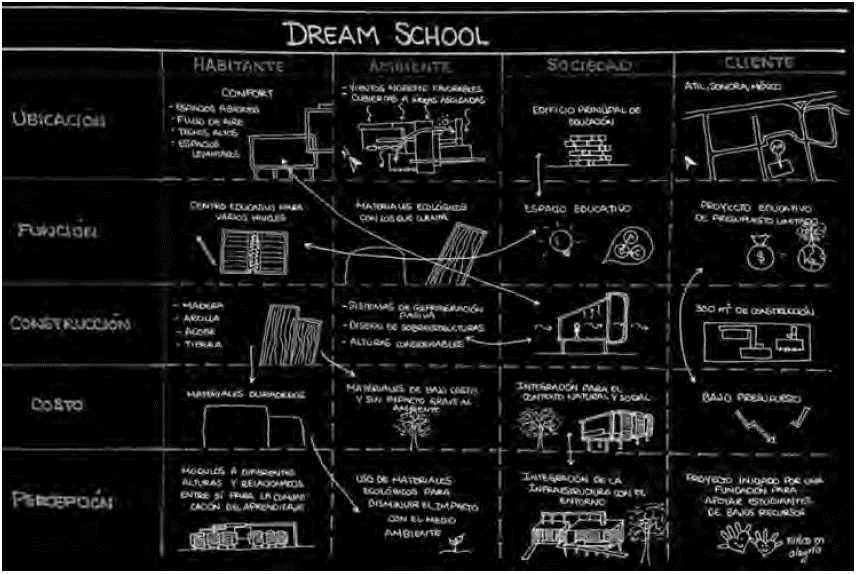 DREAM SCHOOL
HABITANTE
AMBIENTE
SOCIEDAD
CLIENTE
UBICACIÓN
CONFORT
- ESPACIOS ABIERTOS
- FLUJO DE AIRE
- TECHOS ALTOS
- ESPACIOS
LEVANTADOS
- VIENTOS NORESTE FAVORABLES
- CUBIERTAS A AREAS ASOLEADAS
EDIFICIO PRINCIPAL DE
EDUCACIÓN
ATIL, SONORA, MÉXICO
FUNCIÓN
CENTRO EDUCATIVO PARA
VARIOS NIVELES
MATERIALES ECOLÓGICOS
CON LOS QUE CUENTA
ESPACIO EDUCATIVO
PROYECTO EDUCATIVO
DE PRESUPUESTO LIMITADO
$
CONSTRUCCIÓN
- MADERA
- ARCILLA
- ADOBE
- TIERRA
- SISTEMAS DE REFRIGERACIÓN
PASIVA
- DISEÑO DE SOBREESTRUCTURAS
- ALTURAS CONSIDERABLES
300 m² DE CONSTRUCCIÓN
COSTO
MATERIALES DURADEROS
MATERIALES DE BAJO COSTO
Y SIN IMPACTO GRAVE AL
AMBIENTE
INTEGRACIÓN PARA EL
CONTEXTO NATURAL Y SOCIAL
BAJO PRESUPUESTO
PERCEPCIÓN
MODULOS A DIFERENTES
ALTURAS Y RELACIONADOS
ENTRE SÍ PARA LA COMUNI-
CACIÓN DEL APRENDIZAJE
USO DE MATERIALES
ECOLÓGICOS PARA
DISMINUIR EL IMPACTO
CON EL MEDIO
AMBIENTE
INTEGRACIÓN DE LA
INFRAESTRUCTURA CON EL
ENTORNO
PROYECTO INICIADO POR UNA
FUNDACIÓN PARA
APOYAR ESTUDIANTES
DE BAJOS RECURSOS